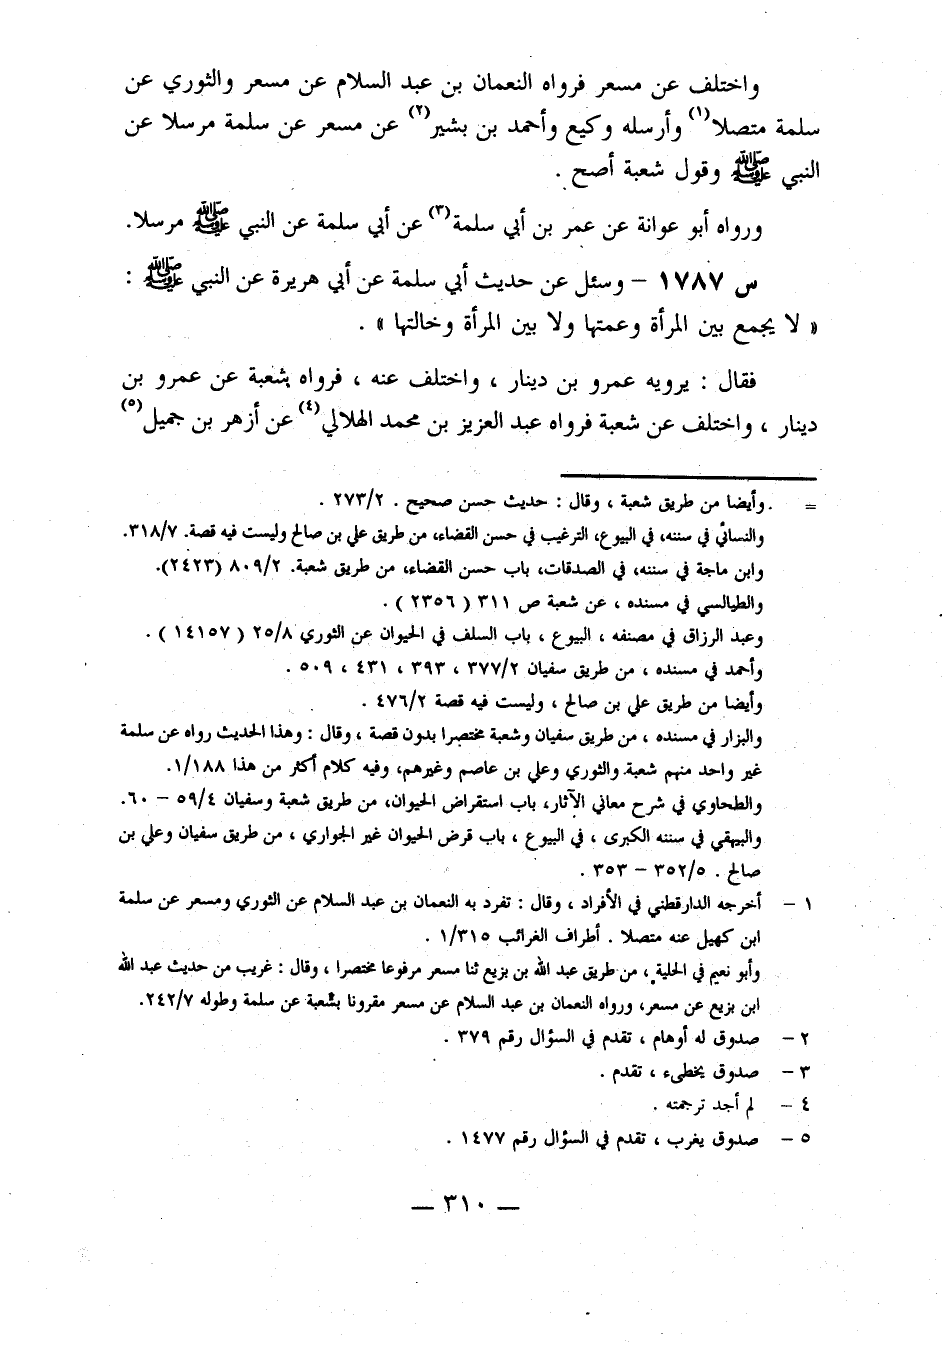 واختلف عن مسعر فرواه النعمان بن عبد السلام عن مسعر والثوري عن
سلمة متصلا(١) وأرسله وكيع وأحمد بن بشير(٢) عن مسعر عن سلمة مرسلا عن
النبي ﷺ وقول شعبة أصح .
ورواه أبو عوانة عن عمر بن أبي سلمة(٣) عن أبي سلمة عن النبي ﷺ مرسلا.
س ١٧٨٧ – وسئل عن حديث أبي سلمة عن أبي هريرة عن النبي ﷺ :
« لا يجمع بين المرأة وعمتها ولا بين المرأة وخالتها » .
فقال : يرويه عمرو بن دينار ، واختلف عنه ، فرواه شعبة عن عمرو بن
دينار ، واختلف عن شعبة فرواه عبد العزيز بن محمد الهلالي(٤) عن أزهر بن جميل(٥)
= وأيضا من طريق شعبة ، وقال : حديث حسن صحيح . ٢٧٣/٢ .
والنسائي في سننه، في البيوع، الترغيب في حسن القضاء، من طريق علي بن صالح وليست فيه قصة. ٣١٨/٧.
وابن ماجة في سننه، في الصدقات، باب حسن القضاء، من طريق شعبة. ٨٠٩/٢ (٢٤٢٣).
والطيالسي في مسنده ، عن شعبة ص ٣١١ ( ٢٣٥٦ ) .
وعبد الرزاق في مصنفه ، البيوع ، باب السلف في الحيوان عن الثوري ٢٥/٨ ( ١٤١٥٧ ) .
وأحمد في مسنده ، من طريق سفيان ٣٧٧/٢ ، ٣٩٣ ، ٤٣١ ، ٥٠٩ .
وأيضا من طريق علي بن صالح ، وليست فيه قصة ٤٧٦/٢ .
والبزار في مسنده ، من طريق سفيان وشعبة مختصرا بدون قصة ، وقال : وهذا الحديث رواه عن سلمة
غير واحد منهم شعبة والثوري وعلي بن عاصم وغيرهم، وفيه كلام أكثر من هذا ١/١٨٨.
والطحاوي في شرح معاني الآثار، باب استقراض الحيوان، من طريق شعبة وسفيان ٥٩/٤ – ٦٠.
والبيهقي في سننه الكبرى ، في البيوع ، باب قرض الحيوان غير الجواري ، من طريق سفيان وعلي بن
صالح . ٣٥٢/٥ – ٣٥٣ .
١ – أخرجه الدارقطني في الأفراد ، وقال : تفرد به النعمان بن عبد السلام عن الثوري ومسعر عن سلمة
ابن كهيل عنه متصلا . أطراف الغرائب ١/٣١٥ .
وأبو نعيم في الحلية، من طريق عبد الله بن بزيع ثنا مسعر مرفوعا مختصرا ، وقال : غريب من حديث عبد الله
ابن بزيع عن مسعر، ورواه النعمان بن عبد السلام عن مسعر مقرونا بشعبة عن سلمة وطوله ٢٤٢/٧.
٢ – صدوق له أوهام ، تقدم في السؤال رقم ٣٧٩ .
٣ – صدوق يخطىء ، تقدم .
٤ – لم أجد ترجمته .
٥ – صدوق يغرب ، تقدم في السؤال رقم ١٤٧٧ .
— ٣١٠ —